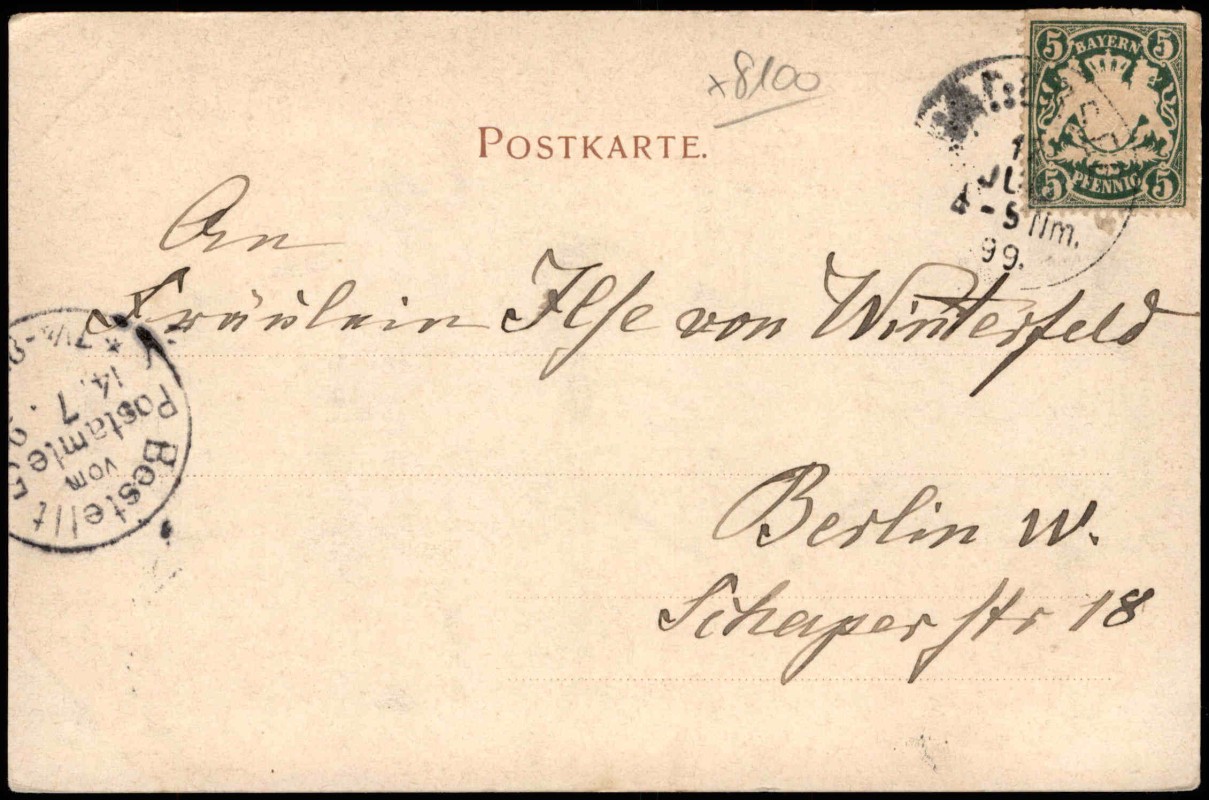 x8100
5 BAYERN 5
5 PFENNIG 5
POSTKARTE.
4-5 Nm.
99.
An
Fräulein Ilse von Winterfeld
Bestellt
vom
Postamte
14. 7.
Berlin W.
Schaperstr 18